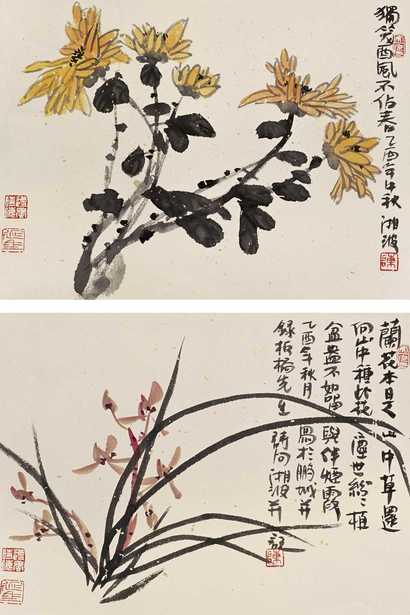 獨笑西風不佔春乙酉年中秋
湘波
蘭花本是山中草還
向山中種此花塵世紛紛植
盆盎不如留與伴煙霞
乙酉年秋月寫於鵬城并
錄板橋先生詩句湘波并